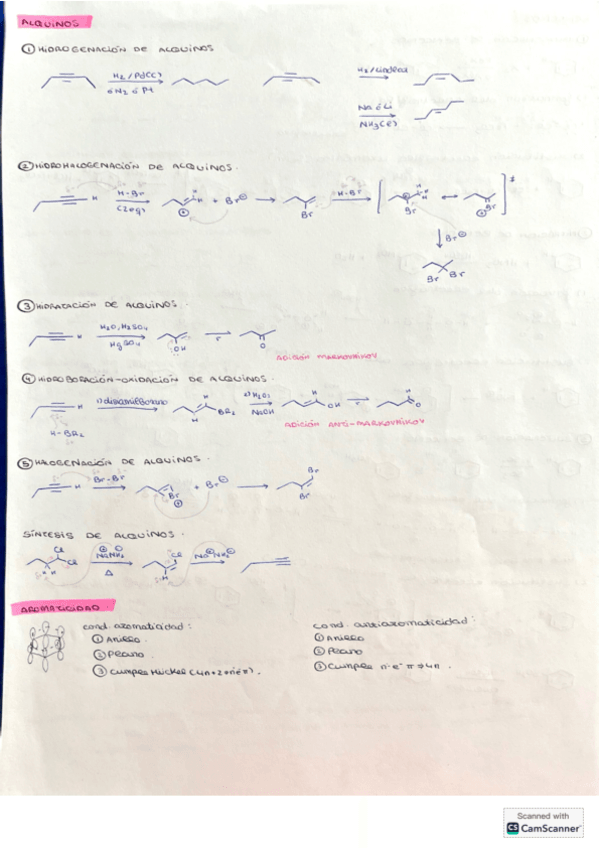 ALQUINOS
① HIDROGENACIÓN DE ALQUINOS
H₂ / Pd(C)
ó Ni ó Pt
H₂ / Lindlar
Na ó Li
NH₃(l)
② HIDROHALOGENACIÓN DE ALQUINOS.
H
H-Br
(2eq)
H
H
⊕
+ Br⊖
Br
H-Br
H
H
Br
⊕Br
Br⊖
Br Br
③ HIDRATACIÓN DE ALQUINOS.
H
H₂O, H₂SO₄
HgSO₄
OH
O
ADICIÓN MARKOVNIKOV
④ HIDROBORACIÓN-OXIDACIÓN DE ALQUINOS.
H
1) disiamilborano
H
BR₂
H
2) H₂O₂
NaOH
H
OH
H
O
H-BR₂
ADICIÓN ANTI-MARKOVNIKOV
⑤ HALOGENACIÓN DE ALQUINOS.
H
Br-Br
H
Br
⊕
+ Br⊖
Br
Br
SÍNTESIS DE ALQUINOS.
Cl
Cl
H
⊕ ⊖
NaNH₂
Δ
Cl
H
Na⊕NH₂⊖
AROMATICIDAD.
cond. aromaticidad:
① Anillo.
② Plano.
③ Cumple Hückel (4n+2 nºe⁻π).
cond. antiaromaticidad:
① Anillo
② Plano
③ Cumple nº e⁻ π ⇒ 4n.
Scanned with
CS CamScanner